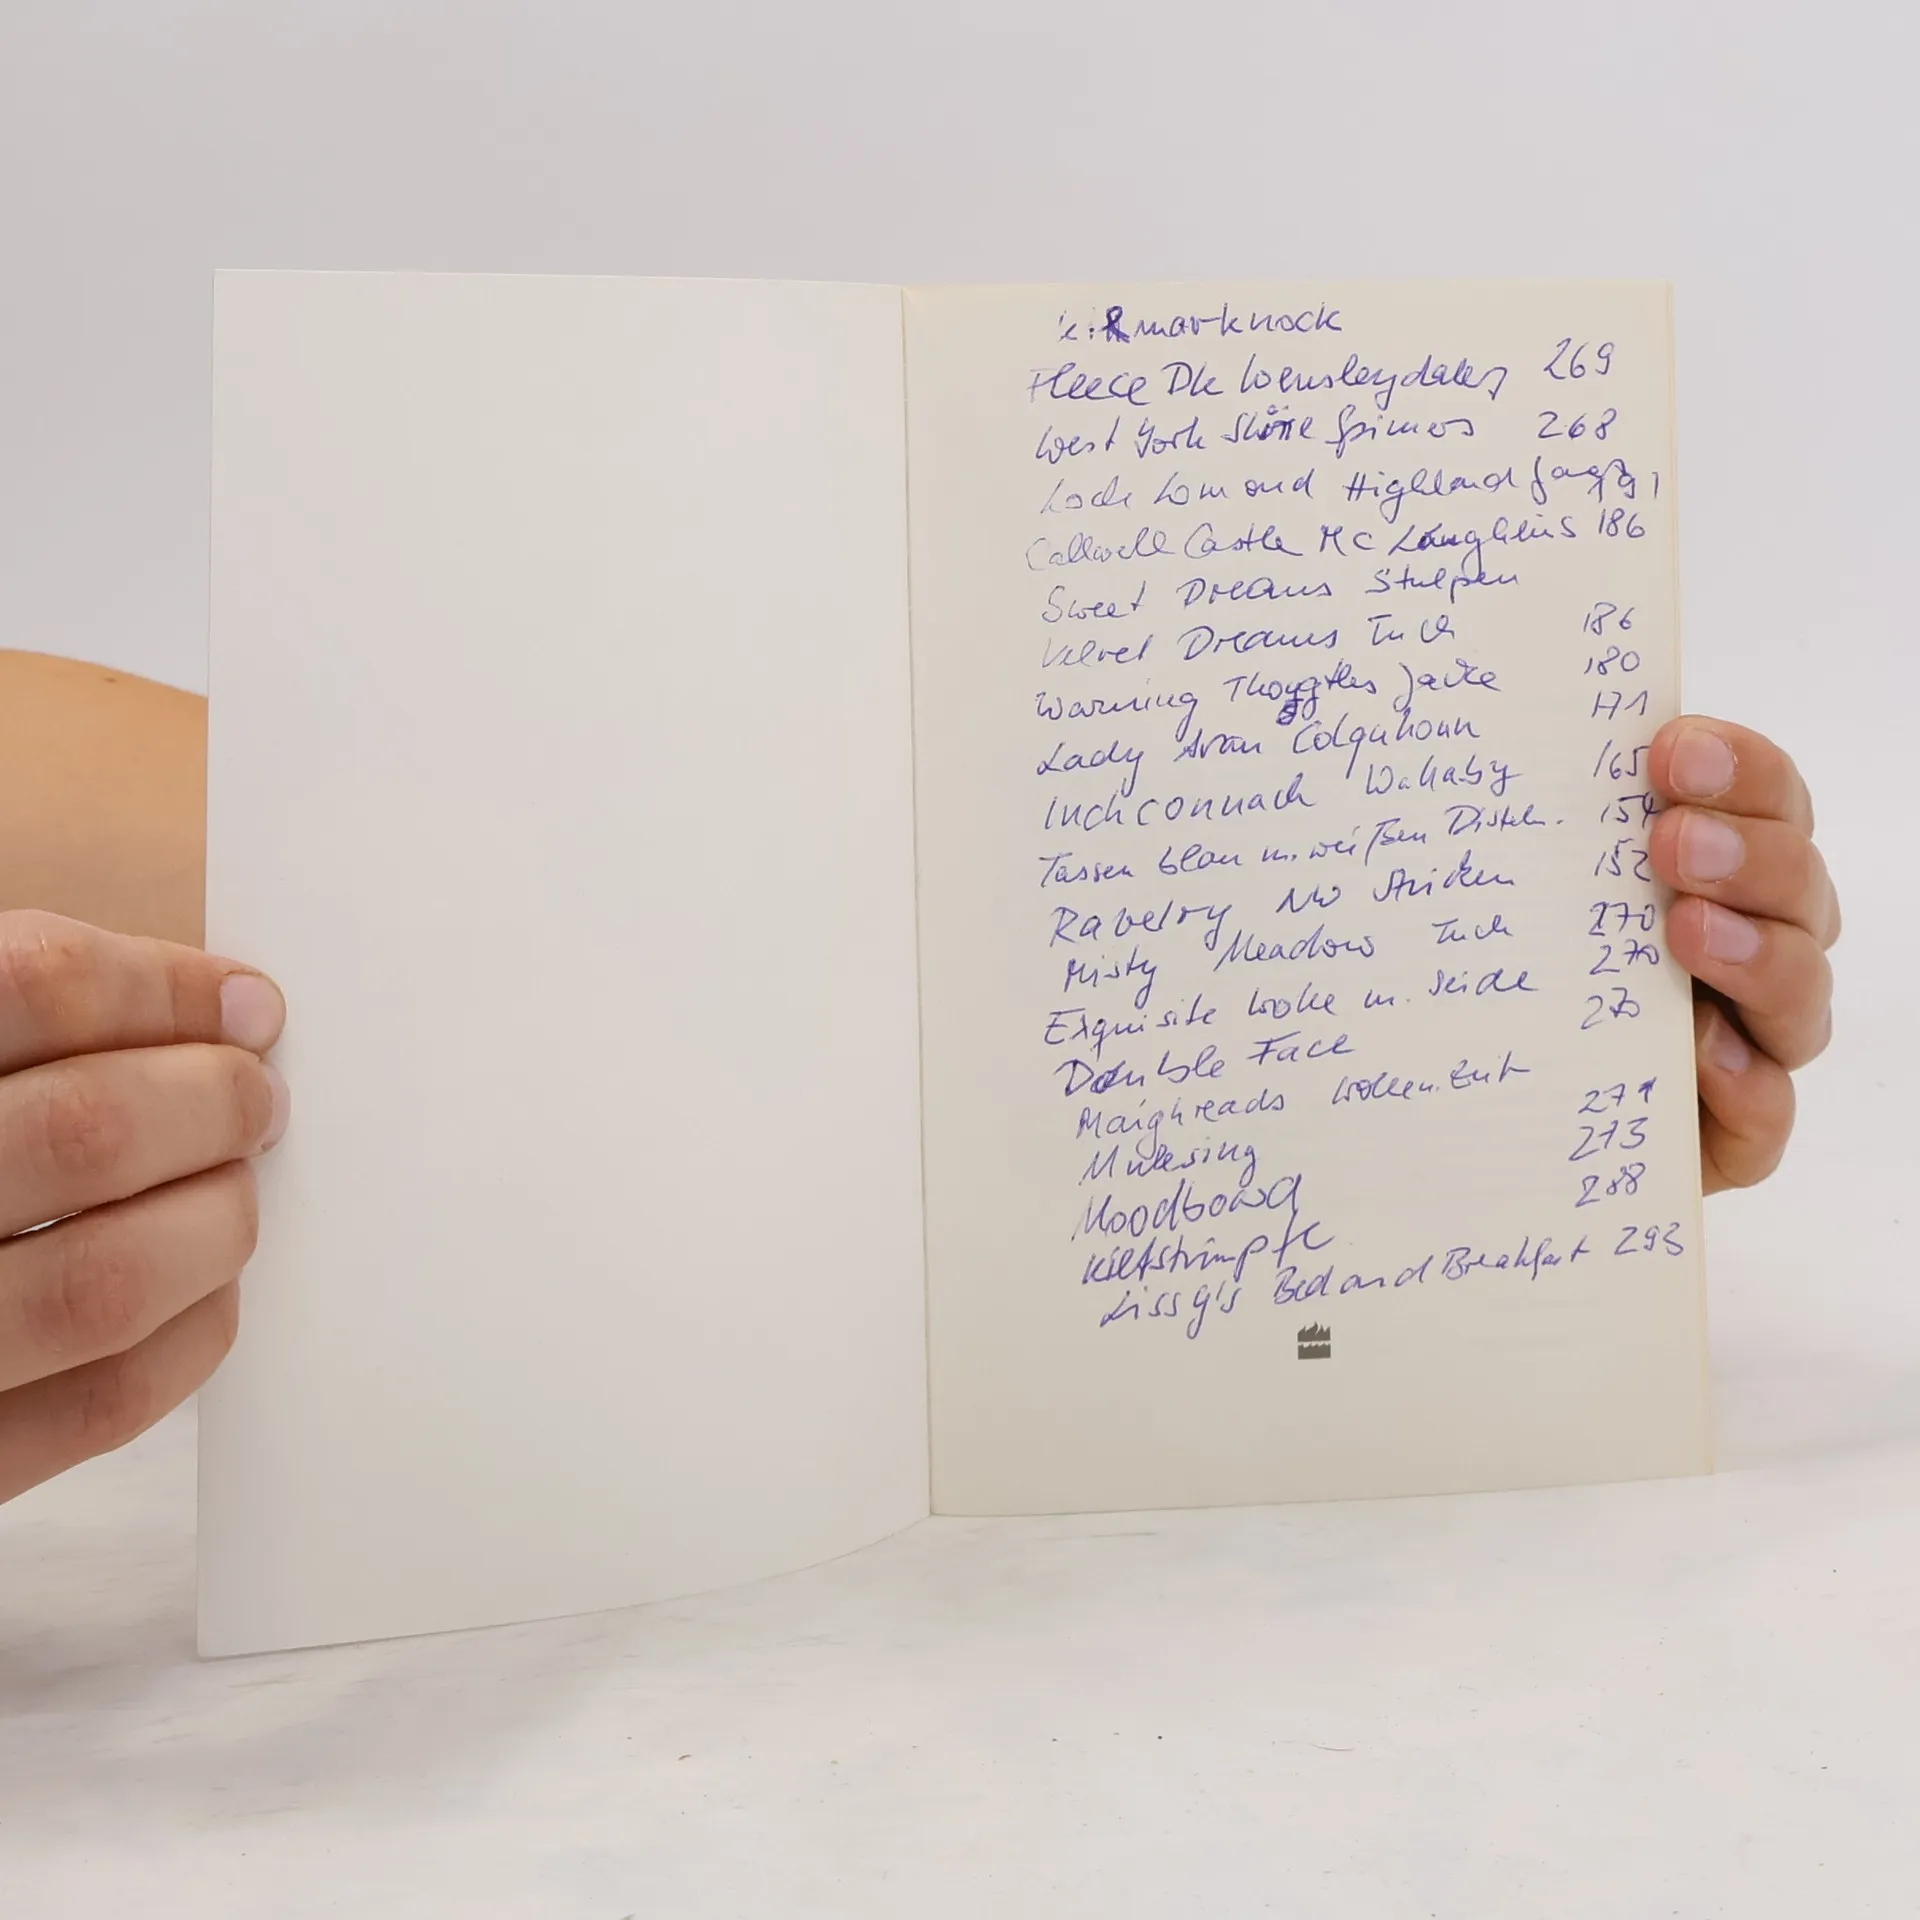 Kilmarknock
Fleece Dk Wensleydales 269
West York Shire Spinners 268
Loch Lomond Highland 191
Callwell Castle Mc Laughlins 186
Sweet Dreams Stulpen
Velvet Dreams Tuch 186
Warming Jacke 180
Lady Avan Colquhoun 171
Inchconnach Wallaby 165
Tassen blau m. weißen Disteln. 154
Ravelry Stricken 152
Misty Meadow Tuch 270
Exquisite Wolle m. Seide 270
Double Face 270
Maighreads Wollen.Zeit
Mulesing 271
Moodboard 273
Kiltstrümpfe 288
Lissy's Bed and Breakfast 293